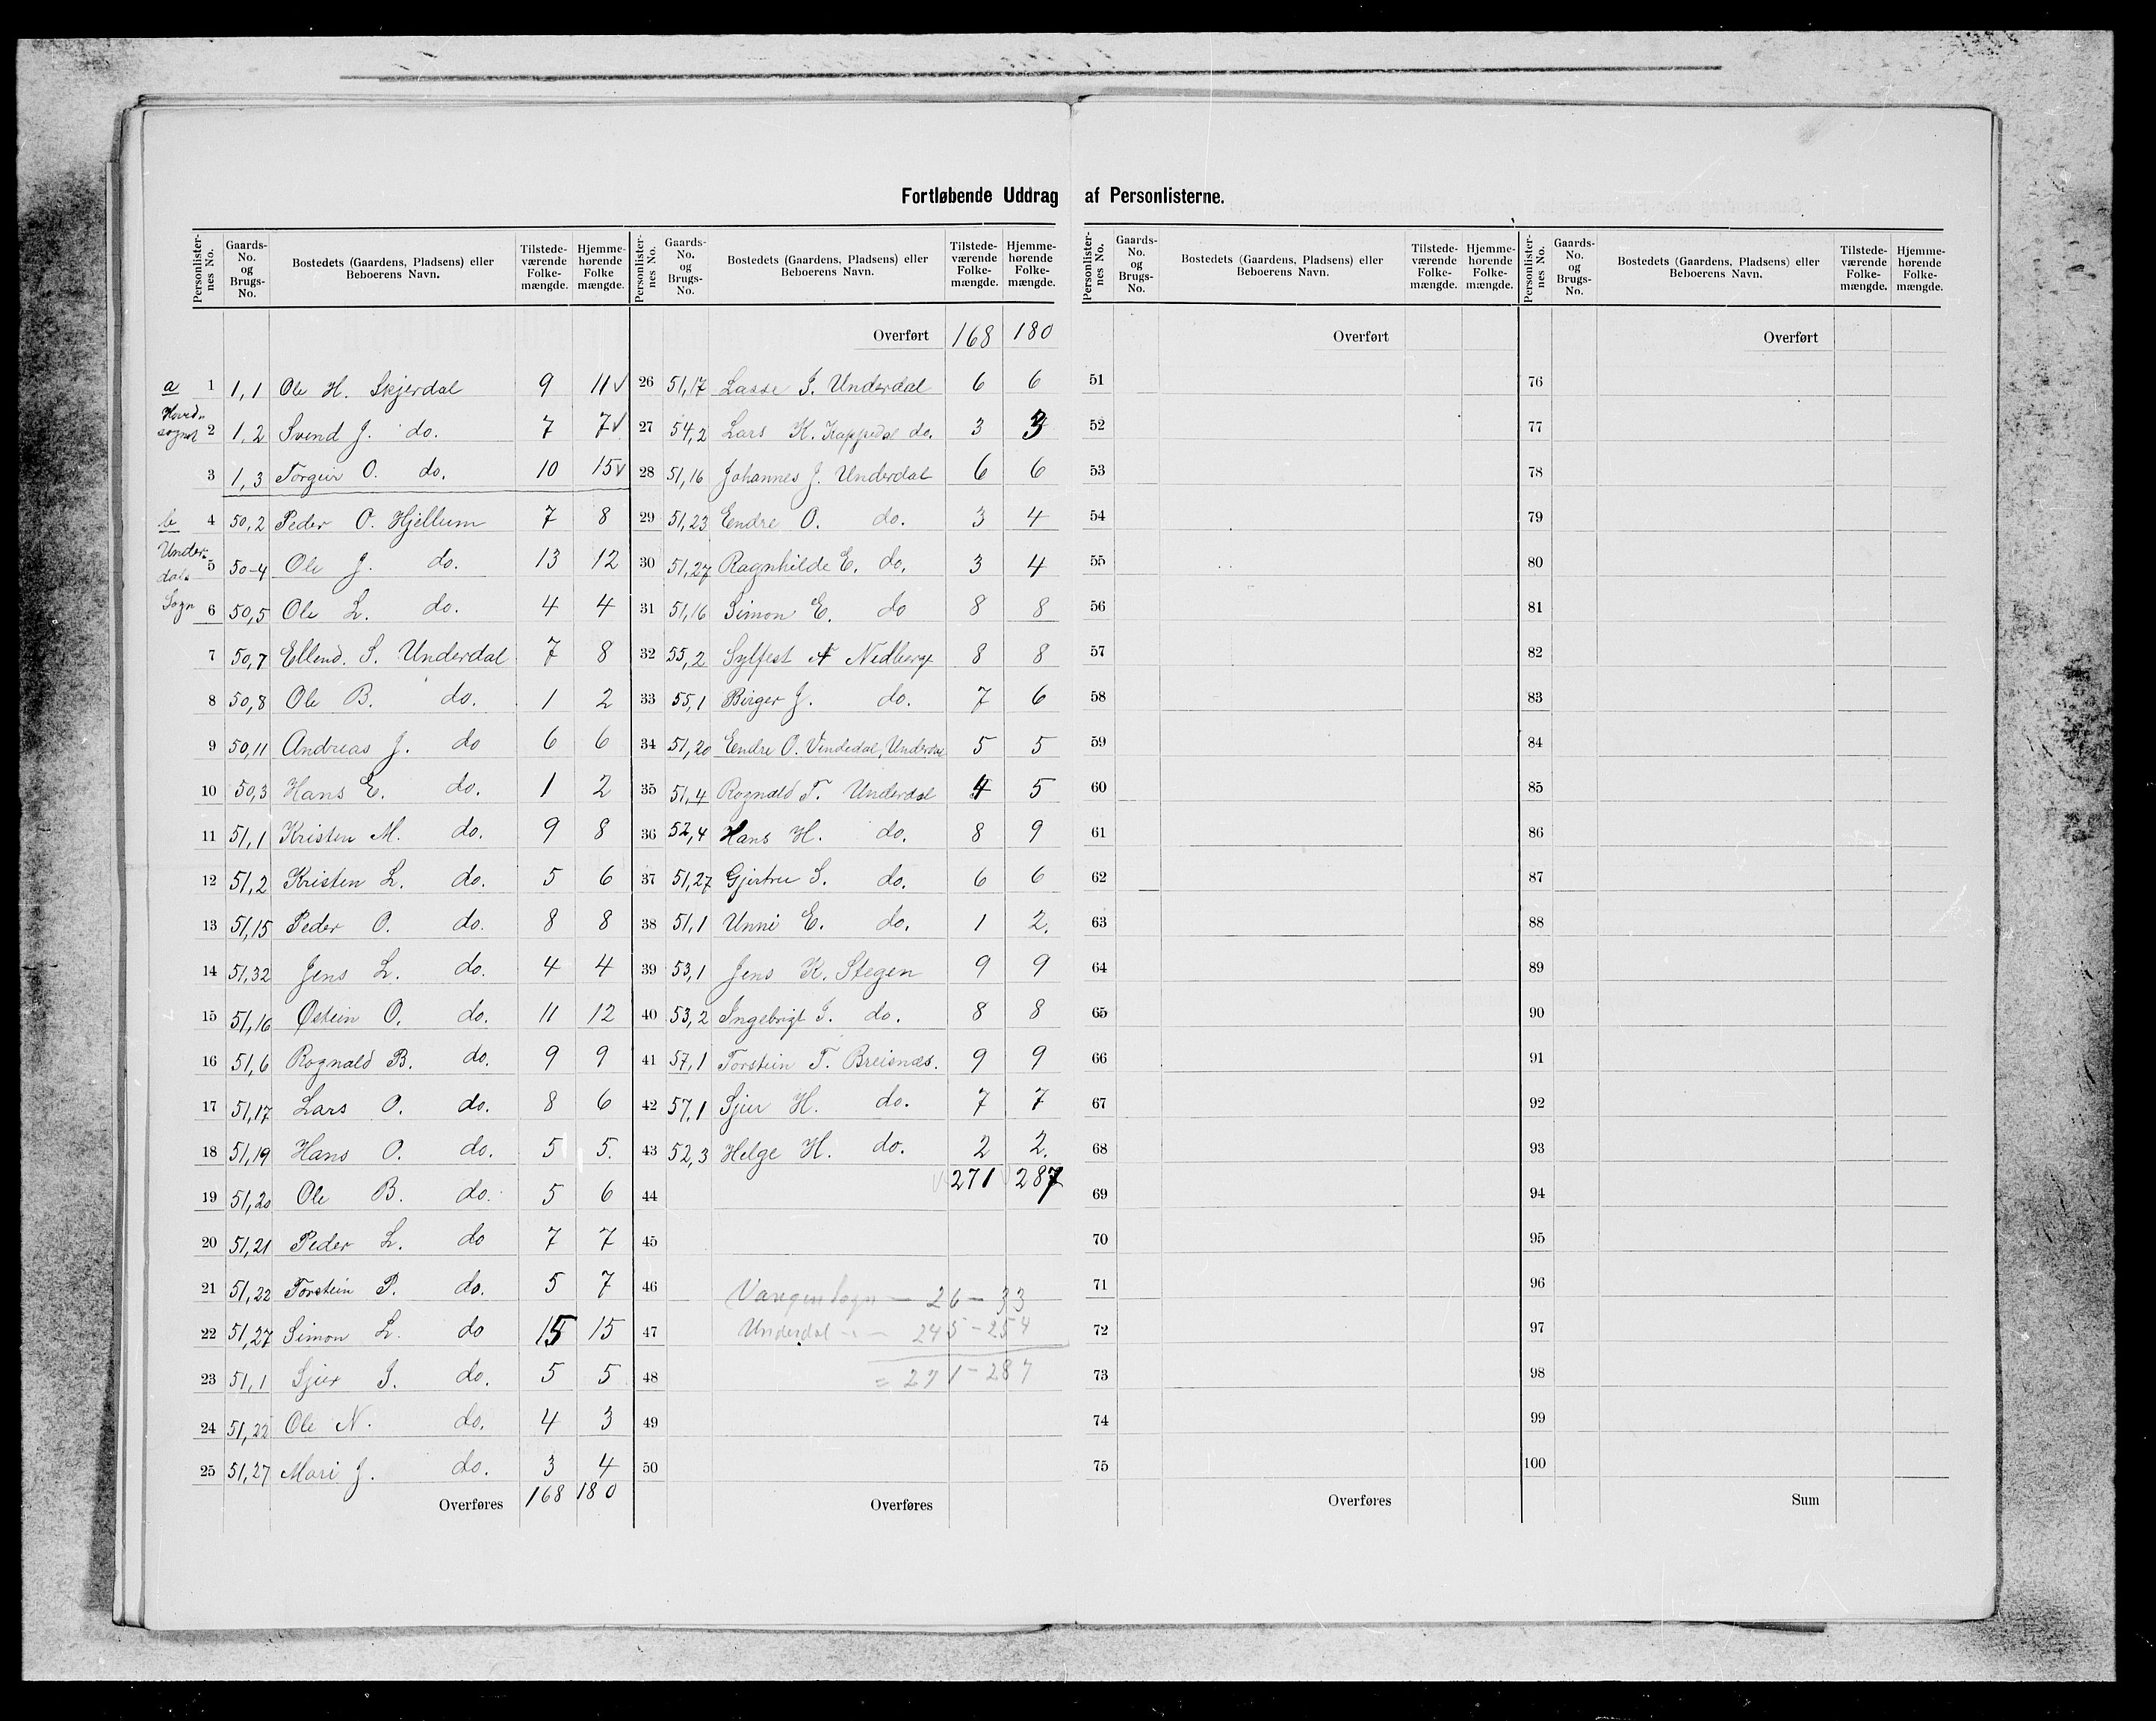 Fortløbende Uddrag af Personlisterne.
Personlister-nes No. | Gaards-No. og Brugs-No. | Bostedets (Gaardens, Pladsens) eller Beboerens Navn. | Tilstede-værende Folke-mængde. | Hjemme-hørende Folke mængde.
a
Hovedsognet
1 | 1,1 | Ole H. Skjerdal | 9 | 11 ✓
2 | 1,2 | Svend J. do. | 7 | 7 ✓
3 | 1,3 | Torgeir O. do. | 10 | 15 ✓
b
Underdals Sogn
4 | 50,2 | Peder O. Hjellum | 7 | 8
5 | 50-4 | Ole J. do. | 13 | 12
6 | 50,5 | Ole L. do. | 4 | 4
7 | 50,7 | Ellend. S. Underdal | 7 | 8
8 | 50,8 | Ole B. do. | 1 | 2
9 | 50,11 | Andreas J. do | 6 | 6
10 | 50,3 | Hans E. do. | 1 | 2
11 | 51,1 | Kristen M. do. | 9 | 8
12 | 51,2 | Kristen L. do. | 5 | 6
13 | 51,15 | Peder O. do. | 8 | 8
14 | 51,32 | Jens L. do. | 4 | 4
15 | 51,16 | Østein O. do. | 11 | 12
16 | 51,6 | Rognald B. do. | 9 | 9
17 | 51,17 | Lars O. do. | 8 | 6
18 | 51,19 | Hans O. do. | 5 | 5.
19 | 51,20 | Ole B. do. | 5 | 6
20 | 51,21 | Peder L. do | 7 | 7
21 | 51,22 | Torstein P. do. | 5 | 7
22 | 51,27 | Simon L. do | 15 | 15
23 | 51,1 | Sjur S. do. | 5 | 5
24 | 51,22 | Ole N. do. | 4 | 3
25 | 51,27 | Mari J. do. | 3 | 4
Overføres | 168 | 180
Personlister-nes No. | Gaards-No. og Brugs-No. | Bostedets (Gaardens, Pladsens) eller Beboerens Navn. | Tilstede-værende Folke-mængde. | Hjemme-hørende Folke-mængde.
Overført | 168 | 180
26 | 51,17 | Lasse S. Underdal | 6 | 6
27 | 54,2 | Lars K. Kappedal do. | 3 | 3
28 | 51,16 | Johannes J. Underdal | 6 | 6
29 | 51,23 | Eendre O. do. | 3 | 4
30 | 51,27 | Ragnhilde E. do. | 3 | 4
31 | 51,16 | Simon E. do | 8 | 8
32 | 55,2 | Sylfest A Nedberg | 8 | 8
33 | 55,1 | Birger J. do. | 7 | 6
34 | 51,20 | Eendre O. Vindedal, Underdal | 5 | 5
35 | 51,4 | Rognald T. Underdal | 4 | 5
36 | 52,4 | Hans H. do. | 8 | 9
37 | 51,27 | Gjertru S. do. | 6 | 6
38 | 51,1 | Unni E. do. | 1 | 2.
39 | 53,1 | Jens K. Stegen | 9 | 9
40 | 53,2 | Ingebrigt J. do. | 8 | 8
41 | 57,1 | Torstein T. Breisnæs. | 9 | 9
42 | 57,1 | Sjur H. do. | 7 | 7
43 | 52,3 | Helge H. do. | 2 | 2.
44 | 271 | 287
45
46 | Vangen Sogn — 26 — 33
47 | Underdal -"- 245 - 254
48 | = 271 - 287
49
50
Overføres
Personlister-nes No. | Gaards-No. og Brugs-No. | Bostedets (Gaardens, Pladsens) eller Beboerens Navn. | Tilstede-værende Folke-mængde. | Hjemme-hørende Folke-mængde.
Overført
51
52
53
54
55
56
57
58
59
60
61
62
63
64
65
66
67
68
69
70
71
72
73
74
75
Overføres
Personlister-nes No. | Gaards-No. og Brugs-No. | Bostedets (Gaardens, Pladsens) eller Beboerens Navn. | Tilstede-værende Folke-mængde. | Hjemme-hørende Folke-mængde.
Overført
76
77
78
79
80
81
82
83
84
85
86
87
88
89
90
91
92
93
94
95
96
97
98
99
100
Sum